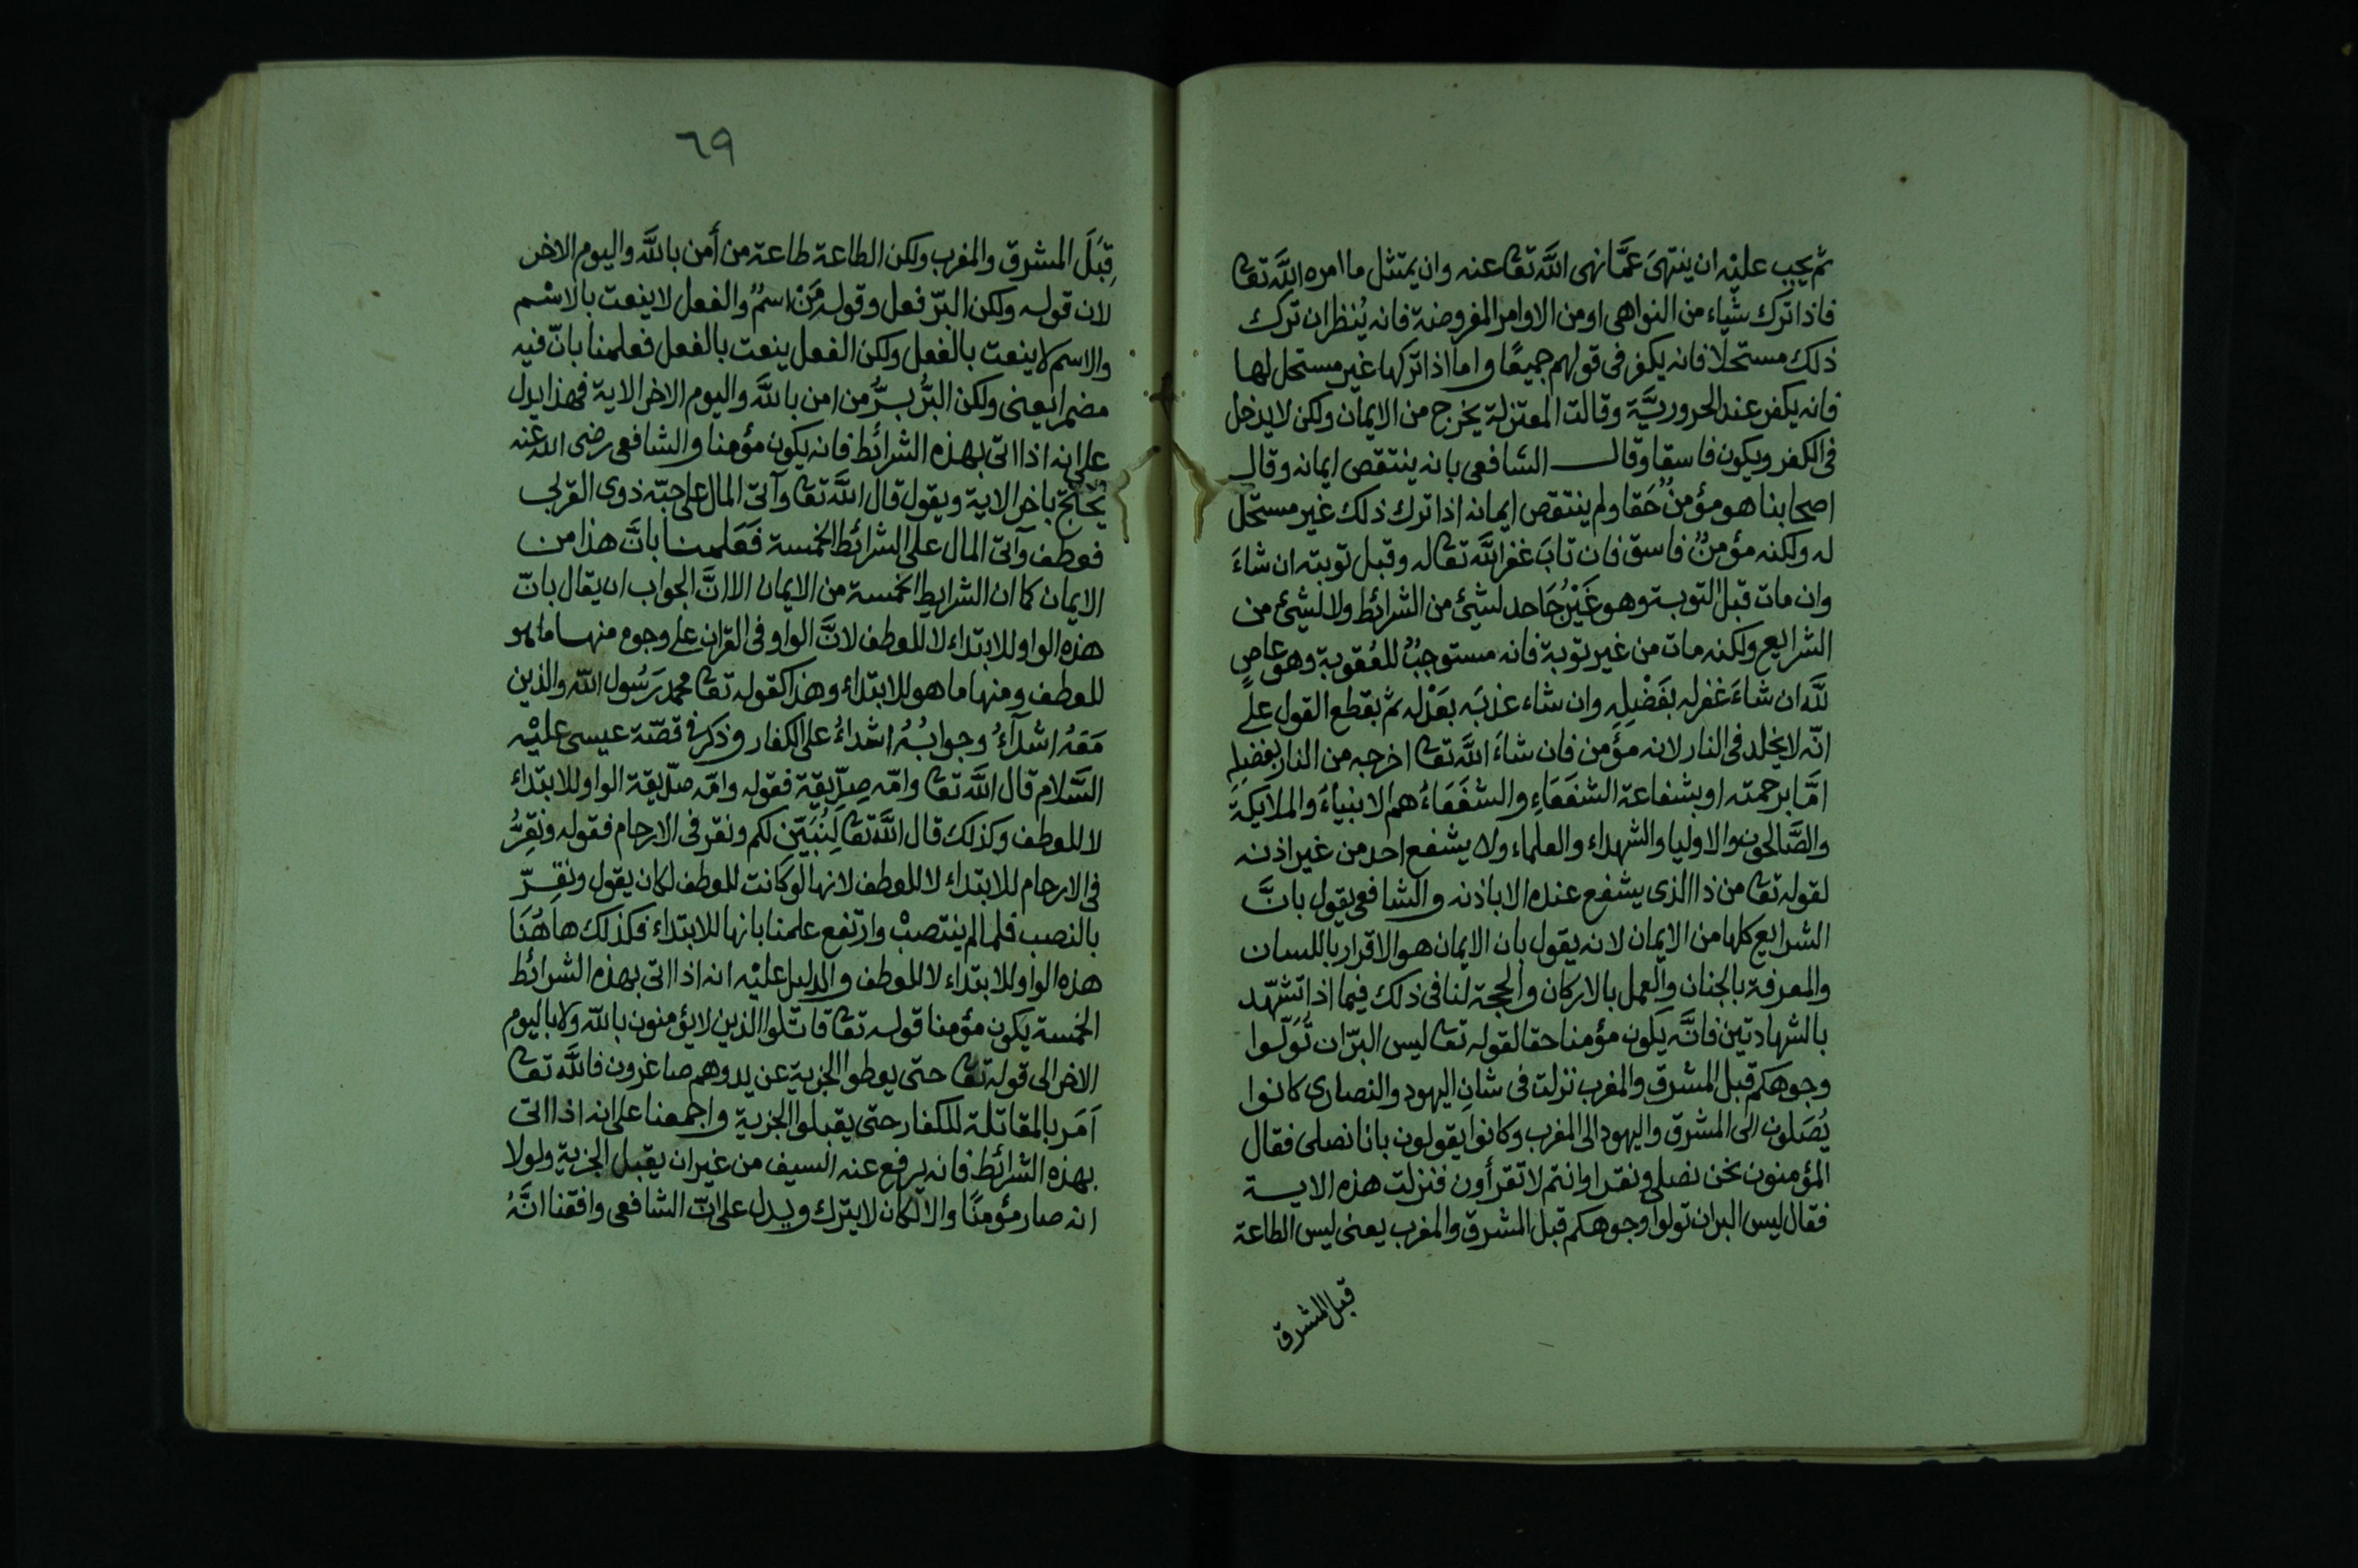 ثم يجب عليْه ان ينتهىَ عَمَّا نهى اللَّه تعا عنه وان يمتثل ما امره اللَّه تعا
فاذا ترك شياء من النواهى او من الاوامر المفروضة فانه يُنظر ان ترك
ذلك مستحلا فانه يكفر فى قولهم جميعًا واما اذا تركها غير مستحل لها
فانه يكفر عند الحروريَّة وقالت المعتزلة يخرج من الايمان ولكن لا يدخل
فى الكفر ويكون فاسقا وقال الشافعى بانه ينتقص ايمانه وقال
اصحابنا هو مؤمنٌ حَقا ولم ينتقص ايمانه اذا ترك ذلك غير مستحل
له ولكنه مؤمنٌ فاسق فان تابَ غفر اللَّه تعا له وقبل توبته ان شاءَ
وان مات قبل التوبة وهو غَيْرُ جَاحد لشيئ من الشرائط ولا لشيئ من
الشرايع ولكنه مات من غير توبة فانه مستوجبٌ للعُقوبة وهو عاصٍ
للَّه ان شاءَ غفر له بفَضْلِه وان شاء عذبَه بعَدْله ثم بقطع القول على
انّه لا يخلد فى النار لانه مؤمن فان شاءَ اللَّه تعا اخرجه من النار بفضلِه
امَّا برحمته او بشفاعة الشفَعَاءِ والشفَعَاءُ هم الانبياءَ والملايكة
والصَّالحون والاوليا والشهداء والعلماء ولا يشفع احد من غير اذنه
لقوله تعا من ذا الذى يشفع عنده الا باذنه والشافعى يقول بانَّ
الشرايع كلها من الايمان لانه يقول بان الايمان هو الاقرار باللسان
والمعرفة بالجنان والعمل بالاركان والحجة لنا فى ذلك فيما اذا تشهّد
بالشهادتين فانَّه يكون مؤمنا حقا لقوله تعا ليس البرّ ان تُوَلّوا
وجوهكم قبل المشرق والمغرب نزلت فى شانِ اليهود والنصارى كانوا
يُصَلون الى المشرق واليهود الى المغرب وكانوا يقولون بانا نصلى فقال
المؤمنون نحن نصلى ونقرا وانتم لا تقرأون فنزلت هذه الاية
فقال ليس البر ان تولوا وجوهكم قبل المشرق والمغرب يعنى ليس الطاعة
قبل المشرق
٦٩
قِبَلَ المشرق والمغرب ولكن الطاعة طاعة من أمن باللَّه واليوم الاخر
لان قوله ولكن البرّ فعل وقوله مَنْ اسمٌ والفعل لا ينعت بالاسْم
والاسم لا ينعت بالفعل ولكن الفعل ينعت بالفعل فعلمنا بانّ فيه
مضمرا يعنى ولكن البرُّ بِرُّ من امن باللَّه واليوم الاخر الاية فهذا يدل
على انه اذا اتى بهذه الشرائط فانه يكون مؤمنا والشافعى رضى الله عنه
يُحْتجّ باخر الاية ويقول قال اللَّه تعا وآتى المال على حبّه ذوى القربى
فعطف وآتى المال على الشرائط الخمسة فعَلمنا بانَّ هذا من
الايمان كما ان الشرايط الخمسة من الايمان الا انَّ الجواب ان يقال بانّ
هذه الواو للابتداء لا للعطف لانَّ الواو فى القران على وجوه منها ما هو
للعطف ومنها ما هو للابتداء وهذا كقوله تعا محمد رَسُول اللَّه والذين
مَعَهُ اشدآءُ وجوابُهُ اشداءُ على الكفار وذكر فى قصّة عيسى عليْه
السَّلام قال اللَّه تعا وامّه صِدِّيقة فقوله وامّه صدّيقة الواو للابتداء
لا للعطف وكذلك قال اللَّه تعا لِنُبَيّن لكم ونقر فى الارحام فقوله ونقِرُّ
فى الارحام للابتداء لا للعطف لانها لو كانت للعطف لكان يقول ونقِرّ
بالنصب فلما لم ينتصبْ وارتفع علمنا بانها للابتداء فكذلك هاهُنَا
هذه الواو للابتداء لا للعطف والدليل عليْه انه اذا اتى بهذه الشرائط
الخمسة يكون مؤمنا قوله تعا قاتلوا الذين لا يؤمنون باللّه ولا باليوم
الاخر الى قوله تعا حتى يعطوا الجزية عن يد وهم صاغرون فاللَّه تعا
اَمَر بالمقاتلة للكفار حتى يقبلوا الجزية واجمعنا على انه اذا اتى
بهذه الشرائط فانه يرفع عنه السيف من غير ان يقبل الجزية ولولا
انه صار مؤمنًا والا لكان لا يترك ويدل على انّ الشافعى وافقنا انَّهُ